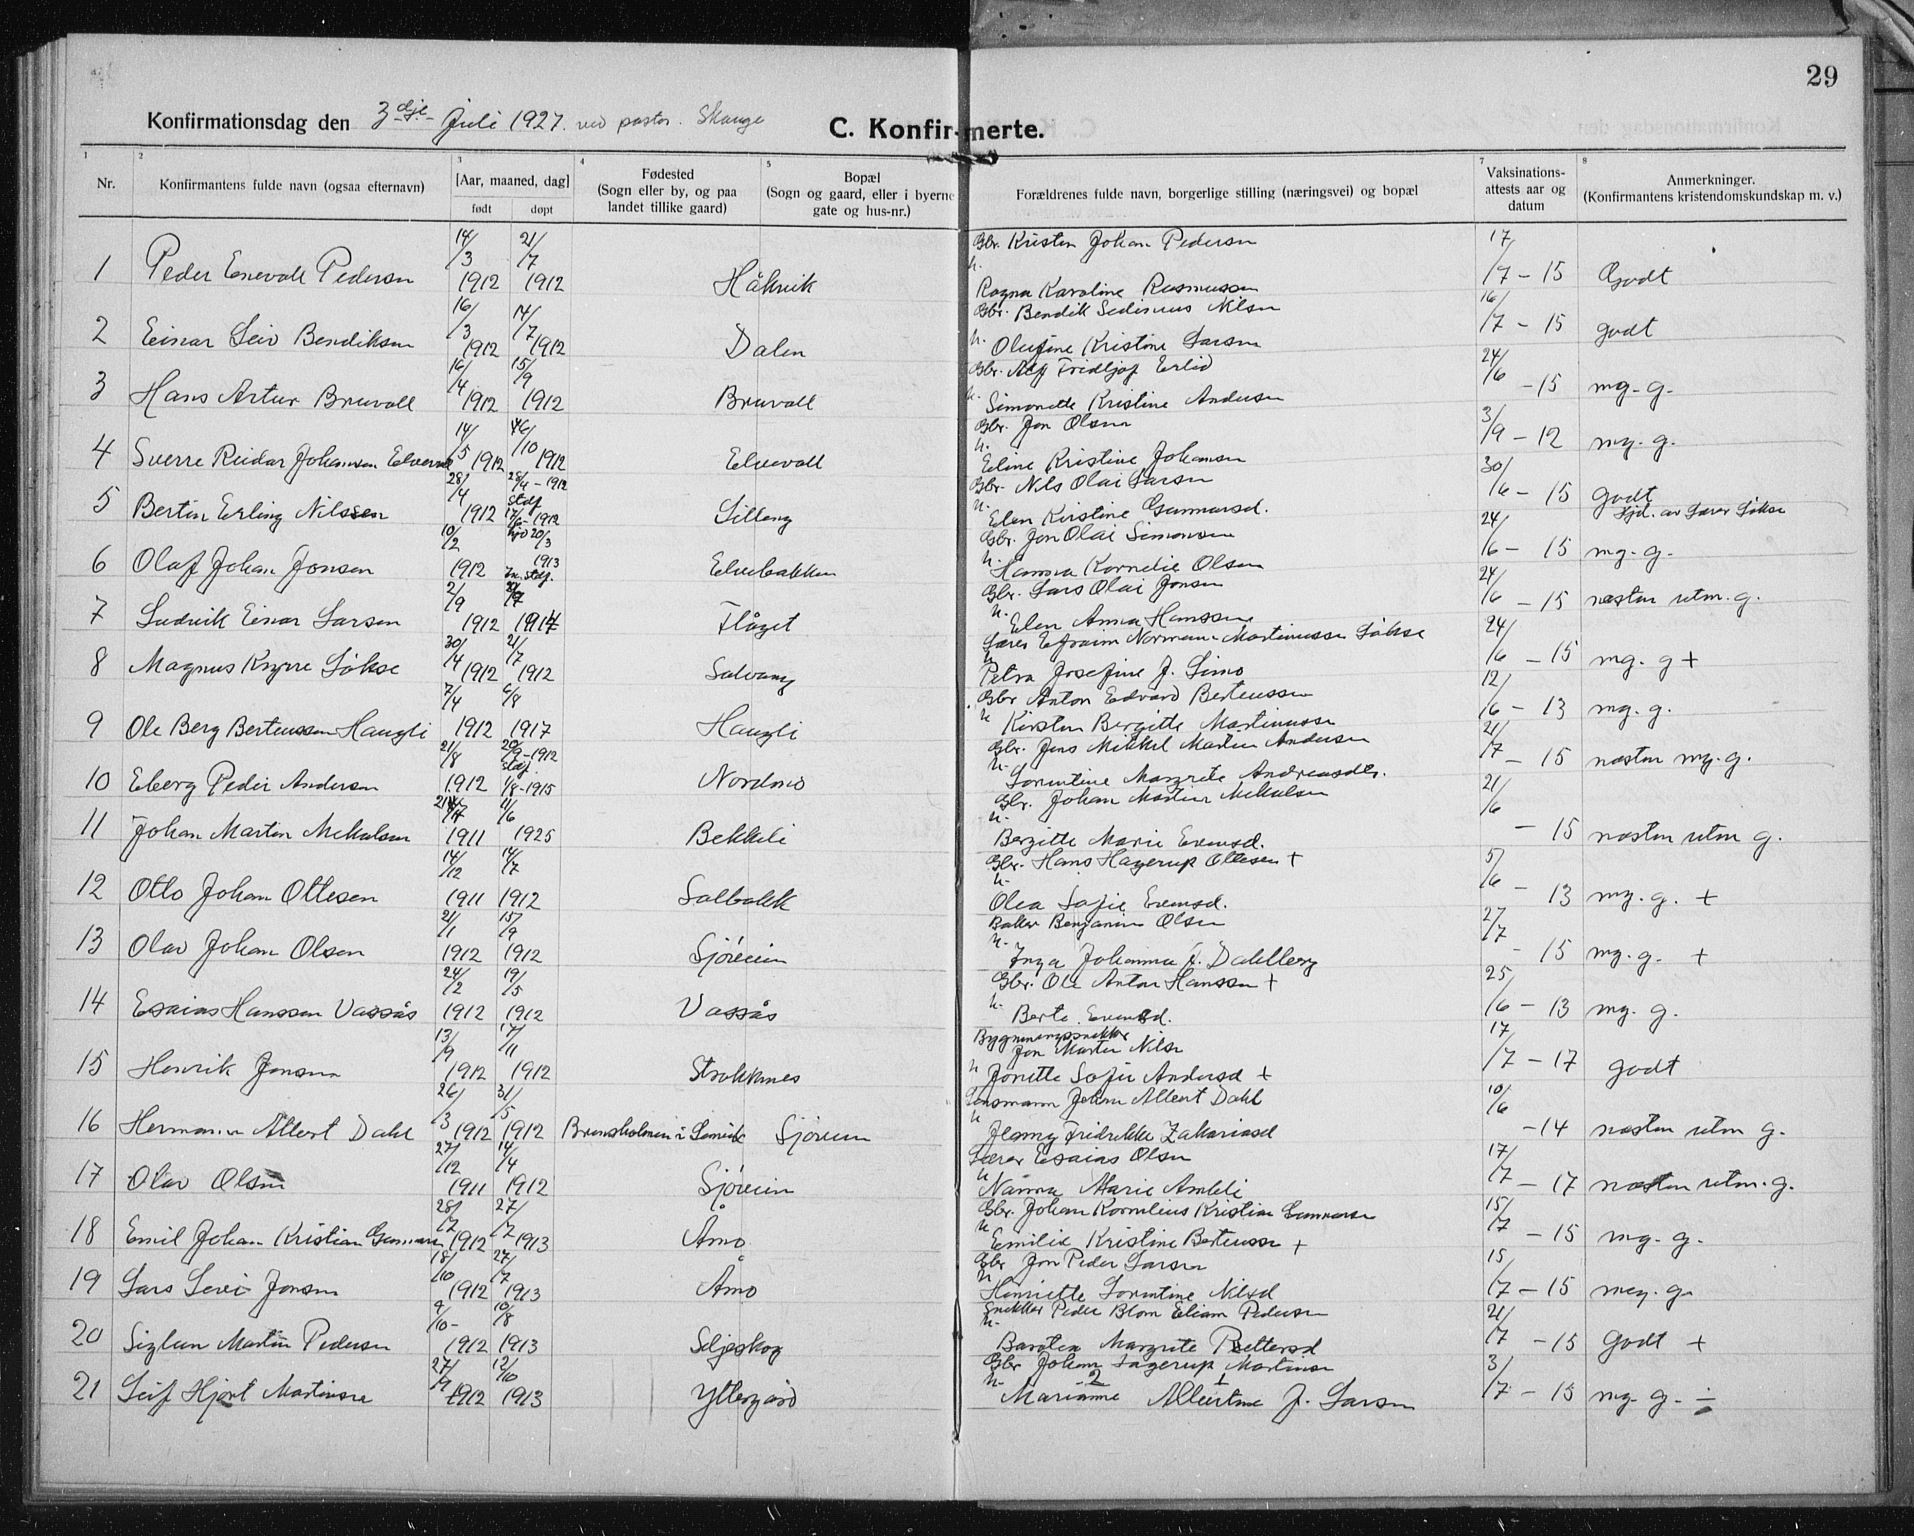 29
Konfirmationsdag den 3dje Juli 1927. ved pastor. Skauge
C. Konfirmerte.
1 2 3 4 5 7 8
Nr. Konfirmantens fulde navn (ogsaa efternavn) [Aar, maaned, dag] født døpt
Fødested (Sogn eller by, og paa landet tillike gaard)
Bopæl (Sogn og gaard, eller i byerne gate og hus-nr.)
Forældrenes fulde navn, borgerlige stilling (næringsvei) og bopæl
Vaksinations-attests aar og datum
Anmerkninger. (Konfirmantens kristendomskundskap m. v.)
1 Peder Enevald Pedersen 14/3 1912 21/7 1912 Håkvik Gbr. Kristen Johan Pedersen u. Ragna Karoline Rasmussen 17/7 - 15 Godt
2 Einar Leiv Bendiksen 16/3 1912 14/7 1912 Dalen Gbr. Bendik Sedinius Nilsen u. Olufine Kristine Larsen 16/7 - 15 godt
3 Hans Artur Bruvoll 16/4 1912 15/9 1912 Bruvoll Gbr. Alf Fridtjof Erlid u. Simonette Kristine Andersen 24/6 - 15 mg. g.
4 Sverre Reidar Johansen Elvevoll 14/5 1912 /10 1912 Elvevoll Gbr. Jon Olsen u. Eline Kristine Johansen 3/9 - 12 mg. g.
5 Bertin Erling Nilssen 28/4 1912 28/4 - 1912 stdf. Lilleng Gbr. Nils Olai Larsen u. Elen Kirstine Gunnarsd. 30/6 - 15 godt
6 Olaf Johan Jonsen 10/2 1912 20/3 1913 Elvebakken Gbr. Jon Olai Simonsen u. Hanna Kornelie Olsen 24/6 - 15 mg. g. Hjd. av Lærer Løkse
7 Ludvik Einar Larsen 2/9 1912 1914 Flåget Gbr. Lars Olai Jonsen u. Elen Anna Hanssen 24/6 - 15 næsten utm. g.
8 Magnus Knyrre Løkse 30/4 1912 21/7 1912 Solvang Lærer Efraim Norman Martinussen Løkse u. Petra Josefine J. Simo 24/6 - 15 mg. g +
9 Ole Berg Berteussen Haugli 7/4 1912 6/8 1917 Haugli Gbr Anton Edvard Berteussen u Kirsten Bergitte Martinussen 12/6 - 13 mg. g.
10 Eberg Peder Andersen 21/8 1912 29/9 - 1912 stdf 1/8 - 1915 Nordmo Gbr. Jens Mikkel Martin Andersen u. Lorentine Margrete Andreasdtr. 21/7 - 15 næsten mg. g.
11 Johan Martin Mikalsen 1911 11/6 1925 Bekkeli Gbr. Johan Martin Mikalsen u. Bergitte Marie Evensd. 21/6 - 15 næsten utm g.
12 Otto Johan Ottesen 14/12 1911 14/7 1912 Solbakk Gbr. Hans Hagerup Ottesen + u. Olea Sofie Evensd. 5/6 - 13 mg. g. +
13 Olav Johan Olsen 21/1 1912 15/9 1912 Sjøveien Baker Benjamin Olsen u. Inga Johanna J. Dahlberg 27/7 - 15 mg. g. +
14 Esaias Hanssen Vassås 24/2 1912 19/5 1912 Vassås Gbr. Ole Anton Hanssen + u. Berte Evensd. 25/6 - 13 mg. g.
15 Henrik Jonsen 13/9 1912 17/11 1912 Strokknes Bygningssnekker Jon Martin Nils u Jonette Sofie Andersd + 17/7 - 17 godt
16 Hermann Albert Dahl 26/3 1912 31/5 1912 Brensholmen i Lenvik Sjøveien Lensmann Johan Albert Dahl u Jenny Fredrikke Zakariasd 10/6 - 14 næsten utm g.
17 Olav Olsen 27/12 1911 14/4 1912 Sjøveien Lærer Esaias Olsen u Nanna Marie Amble 17/7 - 17 næsten utm. g.
18 Emil Johan Kristian Gunnarsen 28/ 1912 27/7 1913 Åmo Gbr. Johan Kornelius Kristian Gunnarsen u Emilie Kristine Berteussen + 15/7 - 15 mg. g.
19 Lars Levi Jonsen 18/10 1912 27/7 1913 Åmo Gbr Jon Peder Larsen u Henriette Lorentine Nilsd 15/7 - 15 meg. g.
20 Martin Pedersen 9/10 - 1912 10/8 1913 Seljeskog Snekker Peder Blom Eliam Pedersen u. Margrete Pettersd 21/7 - 15 Godt +
21 Leif Hjort Martinsen 27/9 1912 12/10 1913 Yttergård Gbr Johan Hagerup Martinsen u. Marianne 2 Albertine 1 J. Larsen 3/7 - 15 mg. g. ÷